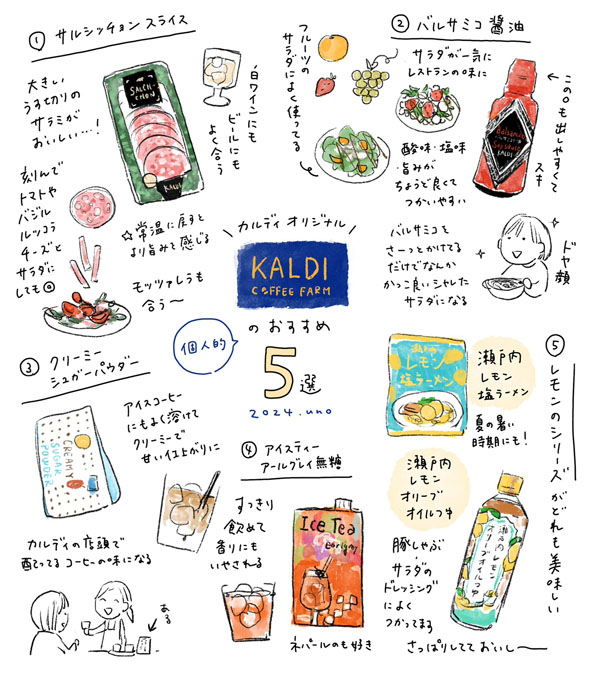 ① サルシッチョン スライス
大きい
うす切りの
サラミが
おいしい…!
SALCHI-
CHON
KALDI
白ワインにも
ビールにも
よく合う
刻んで
トマトや
バジル
ルッコラ
チーズと
サラダに
しても◎
☆常温に戻すと
より旨みを感じる
モッツァレラも
合う〜
フルーツの
サラダによく使ってる
② バルサミコ醤油
サラダが一気に
レストランの味に
酸味・塩味
・旨みが
ちょうど良くて
つかいやすい
この口も出しやすくて
スキ
Balsamico
Soy Sauce
KALDI
バルサミコを
さーっとかけてる
だけでなんか
かっこ良いシャレた
サラダになる
ドヤ顔
カルディ オリジナル
KALDI
COFFEE FARM
のおすすめ
個人的
5選
2024.uno
③ クリーミー
シュガーパウダー
アイスコーヒー
にもよく溶けて
クリーミーで
甘い仕上がりに
CREAMY
SUGAR
POWDER
カルディの店頭で
配ってるコーヒーの味になる
ある
④ アイスティー
アールグレイ無糖
すっきり
飲めて
香りにも
いやされる
Ice Tea
Earlgrey
ネパールのも好き
⑤ レモンのシリーズがどれも美味しい
瀬戸内
レモン
塩ラーメン
瀬戸内
レモン
塩ラーメン
夏の暑い
時期にも!
瀬戸内
レモン
オリーブ
オイルつゆ
瀬戸内レモン
オリーブオイルつゆ
豚しゃぶ
・サラダの
ドレッシング
によく
つかってます
さっぱりしてておいし〜